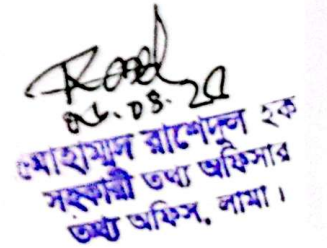 ০৮.০৪.২৫
মোহাম্মদ রাশেদুল হক
সহকারী তথ্য অফিসার
তথ্য অফিস, লামা।